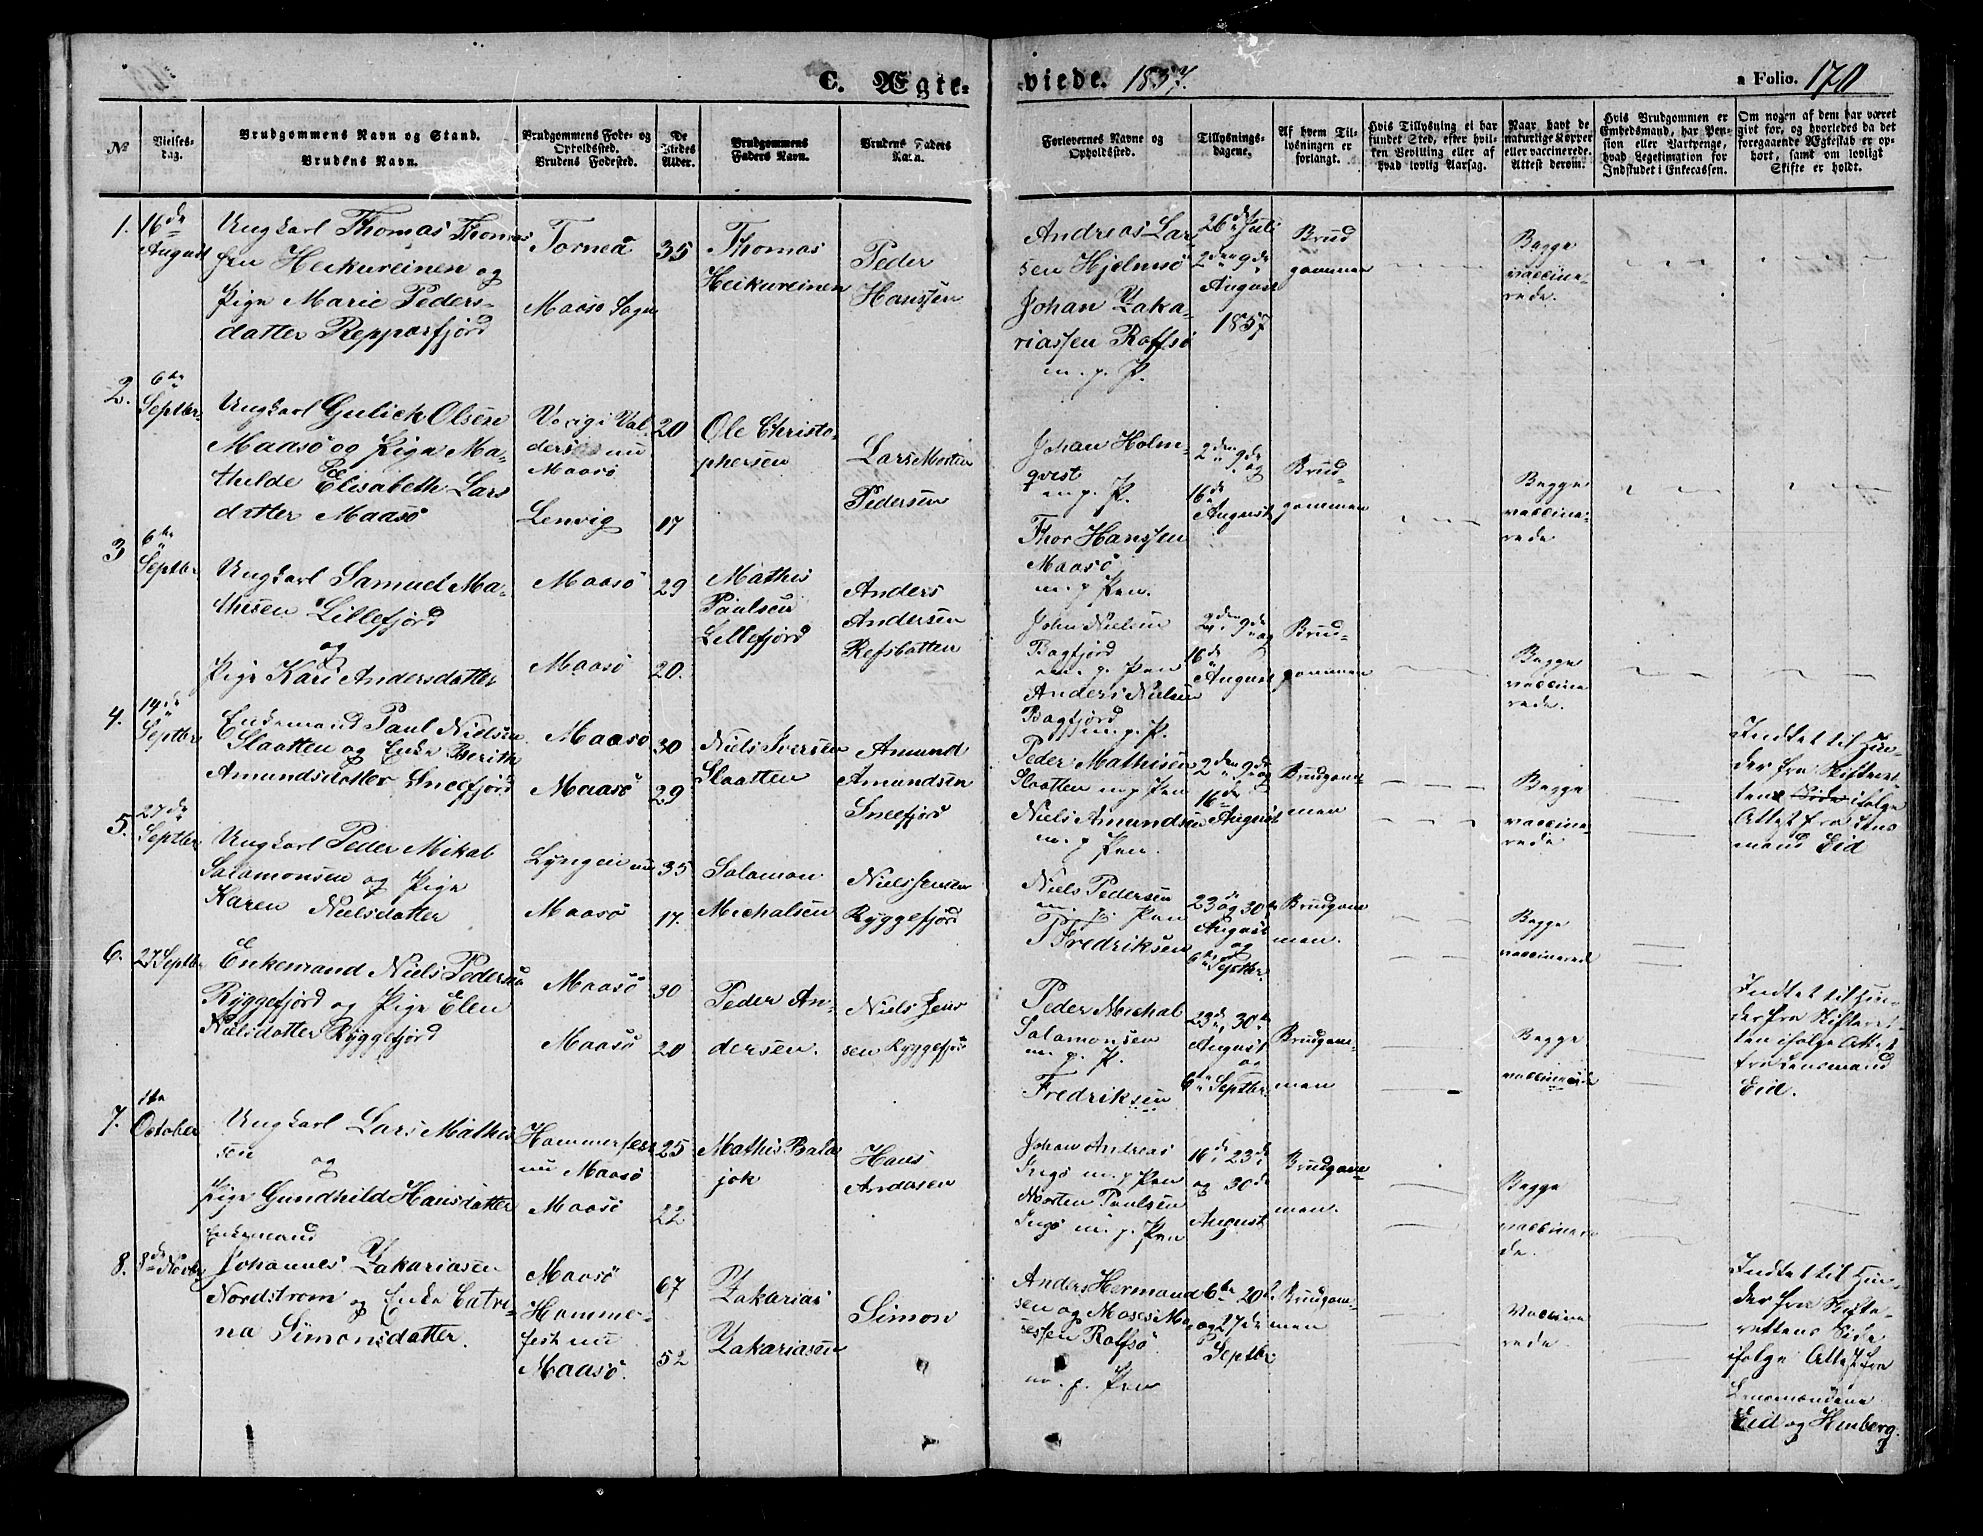 C. Ægte-
viede. 1857.
a Folio. 170
No
Vielses-
dag.
Brudgommens Navn og Stand.
Brudens Navn.
Brudgommens Føde- og
Opholdssted.
Brudens Fødested.
De
Viedes
Alder.
Brudgommens
Faders Navn.
Brudens Faders
Navn.
Forlovernes Navne og
Opholdssted.
Tillysnings-
dagene.
Af hvem Til-
lysningen er
forlangt.
Hvis Tillysning ei har
fundet Sted, efter hvil-
ken Bevilling eller af
hvad lovlig Aarsag.
Naar havt de
naturlige Kopper
eller vaccinerede.
Attest derom.
Hvis Brudgommen er
Embedsmand, har Pen-
sion eller Vartpenge,
hvad Legetimation for
Indskudet i Enkecassen.
Om nogen af dem har været
gift før, og hvorledes da det
foregaaende Ægteskab er op-
hørt, samt om lovligt
Skifte er holdt.
1.
16de
August
Ungkarl Thomas Thomas
sen Heikureinen og
Pige Marie Peders-
datter Repparfjord
Torneå
Maasø Sogn
35
Thomas
Heikureinen
Peder
Hanssen
Andreas Lar
sen Hjelmsø
Johan Zaka-
riassen Rolfsø
m. p. P.
26de Juli
2den 9de
August
1857
Brud
gommen
Begge
vaccine-
rede.
2.
6te
Septbr
Ungkarl Gulick Olsen
Maasø og Pige Ma-
thilde Elisabeth Lars
datter Maasø
Vang i Val-
ders nu
Maasø
Lenvig
20
17
Ole Christo-
phersen
Lars Morten
Pedersen
Johan Holm-
qvest
m. p. P.
Thor Hanssen
Maasø
m. p. Pen.
2den 9de og
16de
August
Brud-
gommen
Begge
vaccine-
rede
3
6te
Septbr
Ungkarl Samuel Ma-
thisen Lillefjord
og
Pige Kari Andersdatter
Maasø
Maasø
29
20.
Mathis
Paulsen
Lillefjord
Anders
Andersen
Refsbotten
John Nielsen
Bagfjord
m. p. Pen
Anders Nielsen
Bagfjord
m. p. P.
2den 9de og
16de
August
Brud-
gommen
Begge
vaccine
rede.
4.
14de
Septbr
Enkemand Paul Nielsen
Slaatten og Enke Berith
Amundsdatter Sneefjord
Maasø
Maasø
30
29
Niels Iversen
Slaatten
Amund
Amundsen
Sneefjord
Peder Mathisen
Slaatten m. p. Pen
Niels Amundsen
m. p. Pen.
2den 9de og
16de
August
Brudgom-
men
Begge
vaccine-
rede
Indtet til Hin-
der fra Skifteret
tens Side ifølge
Attest fra Lens
mand Eid
5.
27de
Septbr
Ungkarl Peder Mikal
Salamonsen og Pige
Karen Nielsdatter
Lyngen nu
Maasø
35
17.
Salamon
Michalsen
Niels Jensen
Ryggefjord
Niels Pedersen
m. p. Pen
P Fredriksen
23de og 30te
August
og
6te Septbr.
Brudgom-
men.
Begge
vaccinerede
6.
27 Septbr
Enkemand Niels Pedersen
Ryggefjord og Pige Elen
Nielsdatter Ryggefjord
Maasø
Maasø
30
20
Peder An-
dersen.
Niels Jens
sen Ryggefjord
Peder Michal
Salamonsen
m. p. P.
Fredriksen
23de, 30te
August
og
6te Septbr.
Brudgom-
men
Begge
vaccinerede
Indtet til Hin-
der fra Skifteret-
ten ifølge Attest
fra Lensmand
Eid.
7.
1ste
October
Ungkarl Lars Mathis
sen
og
Pige Gundhild Hansdatter
Hammerfest
nu Maasø
Maasø
25
22
Mathis Bala
jok
Hans
Andersen
Johan Andreas
Ingø m. p. Pen
Morten Paulsen
Ingø m. p. Pen
16de 23de
og 30te
August
Brudgom-
men.
Begge
vaccinere
de.
8.
8de Novbr
Enkemand
Johannes Zakariasen
Nordstrøm og Enke Catri-
na Simonsdatter.
Maasø
Hammer-
fest nu
Maasø.
67
52
Zakarias
Zakariasen
Simon
Anders Hermand
sen og Moses Mo
sessen Rolfsø
m. p. Pen
6te 20de
og 27de
Septbr
Brudgom-
men
Vaccine
rede.
Indtet til Hin-
der fra Skifte-
rettens Side
ifølge Attest fra
Lensmændene
Eid og Henberg.